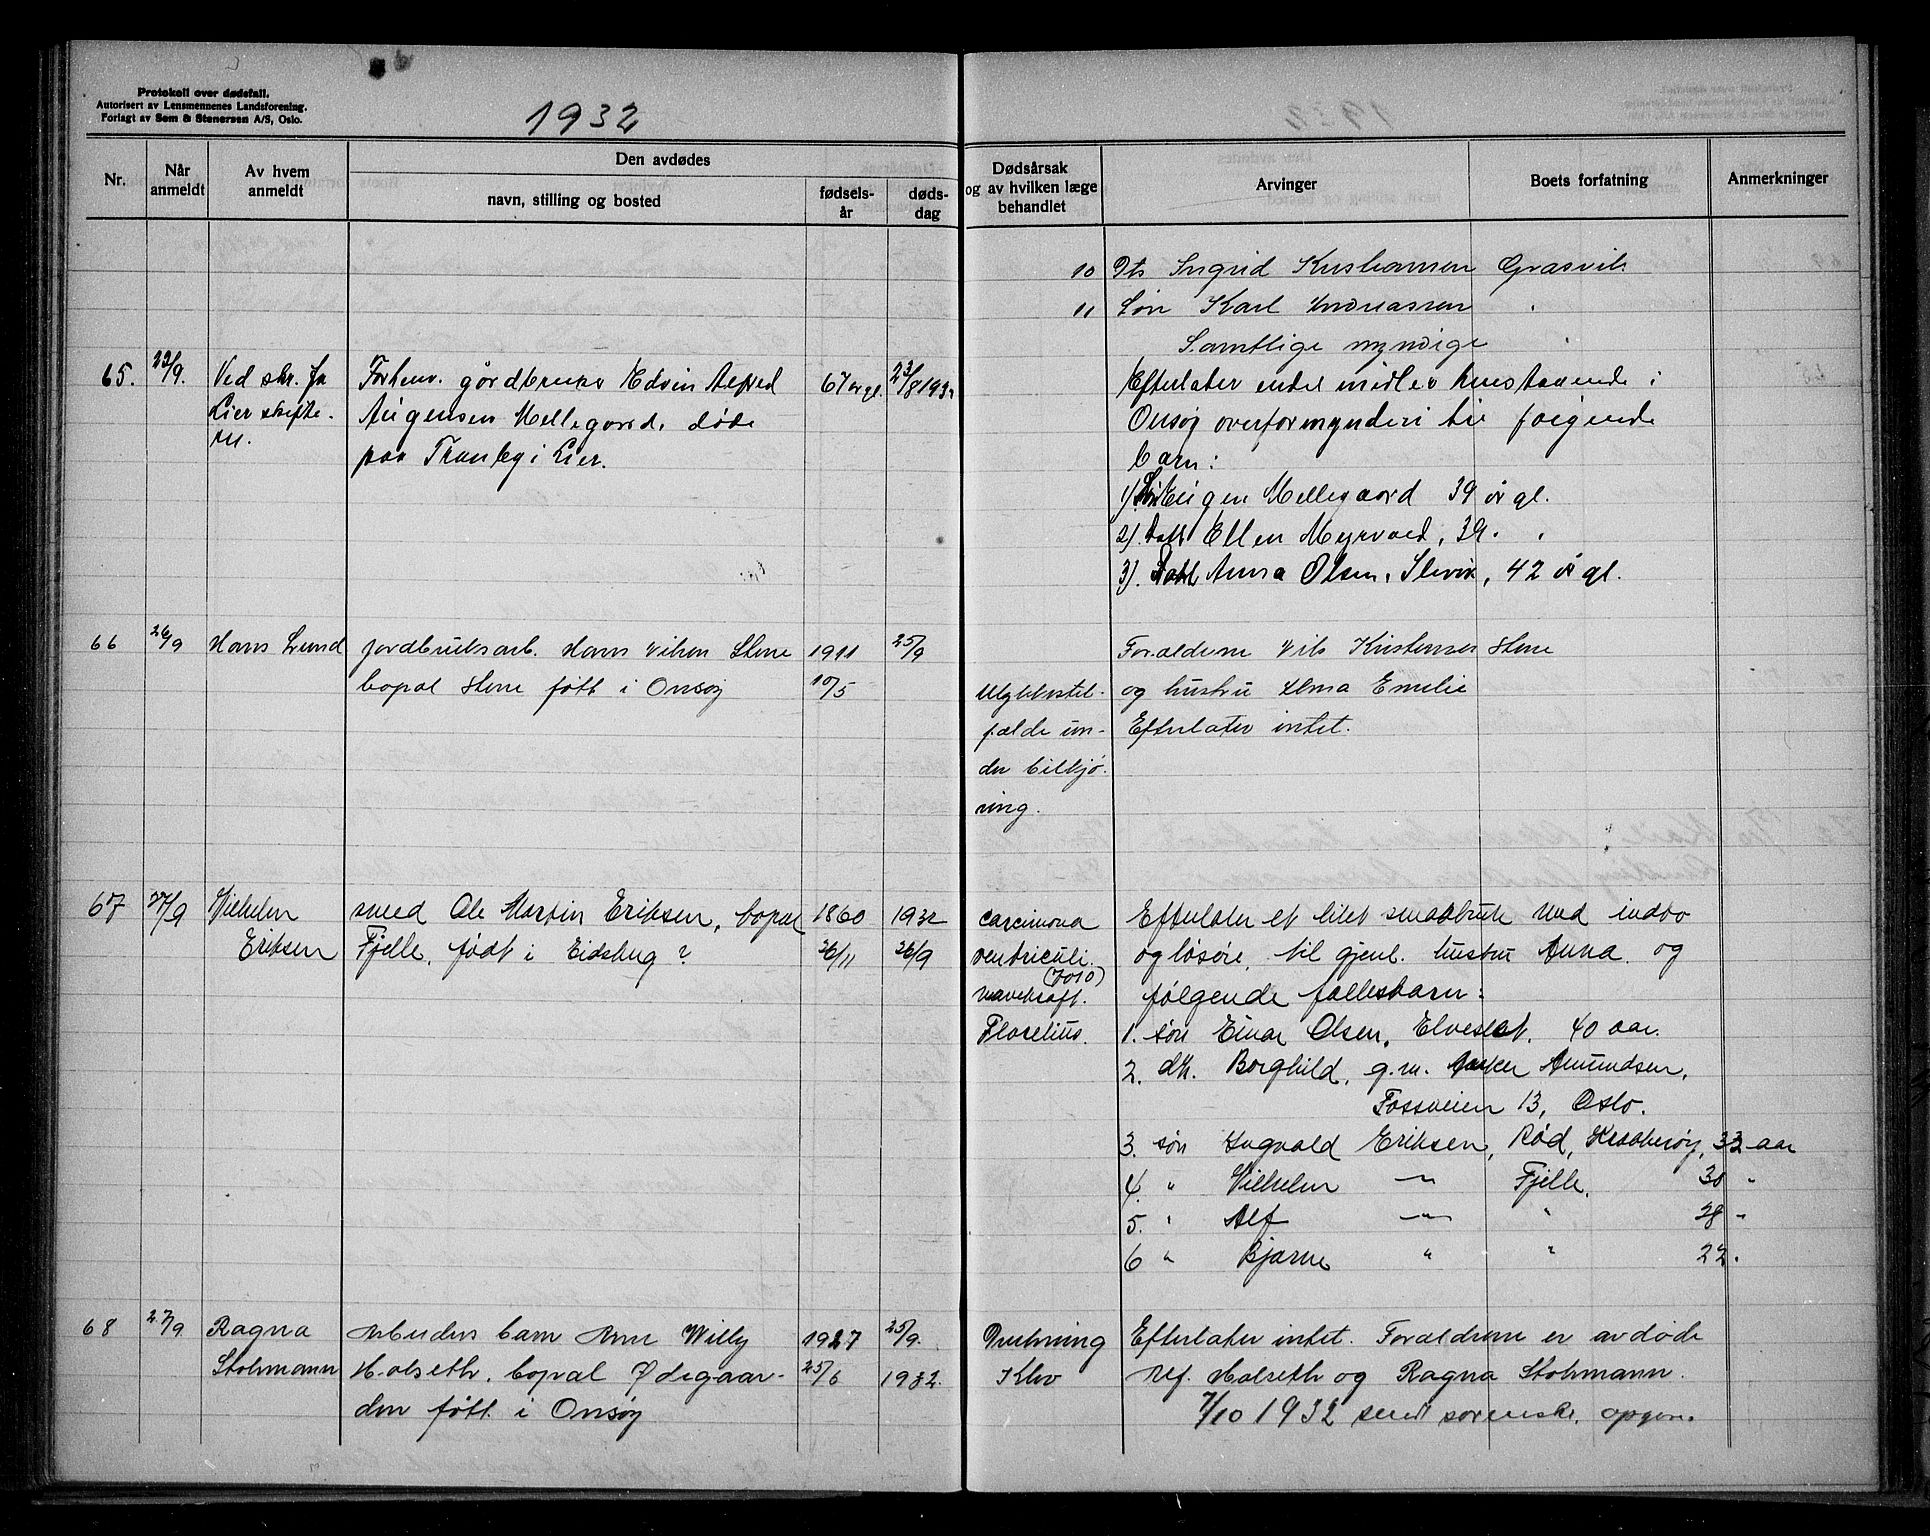 Protokoll over dødsfall.
Autorisert av Lensmennenes Landsforening.
Forlagt av Sem & Stenersen A/S, Oslo.
1932
Nr.
Når anmeldt
Av hvem anmeldt
Den avdødes
navn, stilling og bosted
fødsels-år
døds-dag
Dødsårsak og av hvilken læge behandlet
Arvinger
Boets forfatning
Anmerkninger
10 Dtr Ingrid Kristiansen Græsvik
11 Søn Karl Andreassen "
Samtlige myndige
65. 23/9. Ved skr. fra Forhenv. gårdbruker Edvin Alfred 67 år gl. 23/8 1932 Efterlater endel midler innestaaende i
Lier skifte- Jørgensen Mellegaard, døde Onsøy overformynderi til følgende
rett. paa Tranby i Lier. barn:
1) Søn Eugen Mellegaard 39 år gl.
2) Datt Ellen Myrvold, 39 " "
3) Datt Anna Olsen, Slevik, 42 år gl.
66 26/9 Hans Lund jordbruksarb. Hans Nilsen Stene 1911 25/9 Forældrene Nils Kristensen Stene
bopæl Stene født i Onsøy 10/5 Ulykkestil- og hustru Alma Emelie
fælde un- Efterlater intet.
der bilkjø-
ring.
67 27/9 Vilhelm smed Ole Martin Eriksen, bopæl 1860 1932 carcimona Efterlater et litet smaabruk med indbo
Eriksen Fjelle, født i Eidsberg ? 26/11 26/9 ventriculi. og løsøre, til gjenl. hustru Anna og
mavekræft. følgende fællesbarn:
Floselius. 1. søn Einar Olsen, Elveslet, 40 aar.
2. dtr. Borghild, g.m. Asker Amundsen,
Fossveien 13, Oslo.
3. søn Ingvald Eriksen, Rød, Kraakerøy, 33 aar
4. " Vilhelm " Fjelle, 30 "
5. " Alf " " 28 "
6 " Bjarne " " 22 "
68 27/9 Ragna Arbeiders barn Arne Willy 1927 25/9. Drukning Efterlater intet. Forældrene er avdøde
Stohmann Holseth, bopæl Ødegaar- 25/6 1932. Alf. Holseth og Ragna Stohmann.
den født i Onsøy 7/10 1932 sendt sorenskr. opgave.